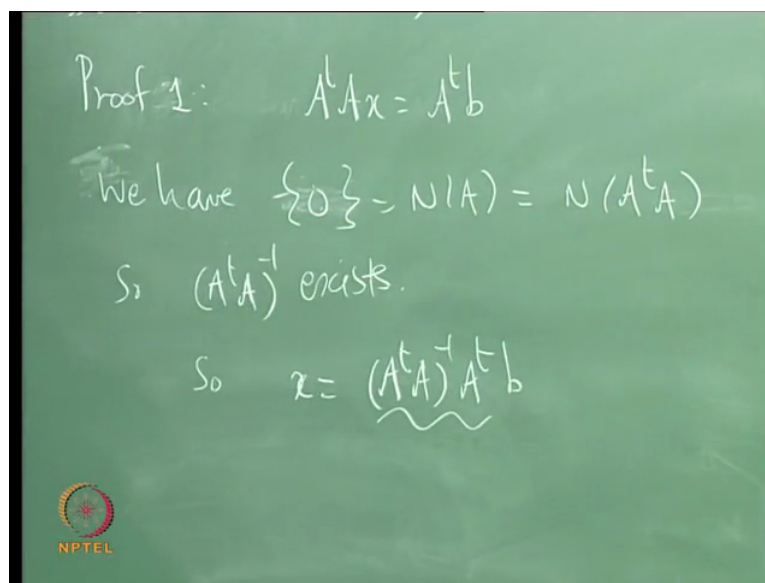 Proof 1: AᵗAx = Aᵗb
We have {0} = N(A) = N(AᵗA)
So (AᵗA)⁻¹ exists.
So x = (AᵗA)⁻¹Aᵗb
NPTEL